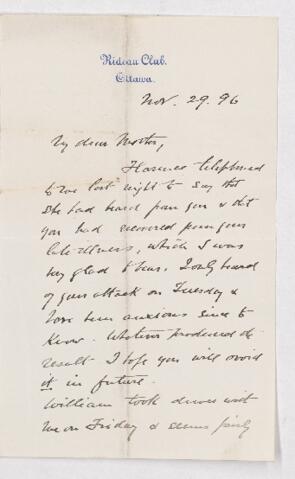 Rideau Club.
Ottawa.
Nov. 29. 96
My dear Mother,
Florence telephoned
to me last night to say that
she had heard from you & that
you had recovered from your
late illness, which I was
very glad to hear. I only heard
of your attack on Tuesday &
have been anxious since to
know. Whatever produced the
result I hope you will avoid
it in future.
William took dinner with
me on Friday & seems fairly